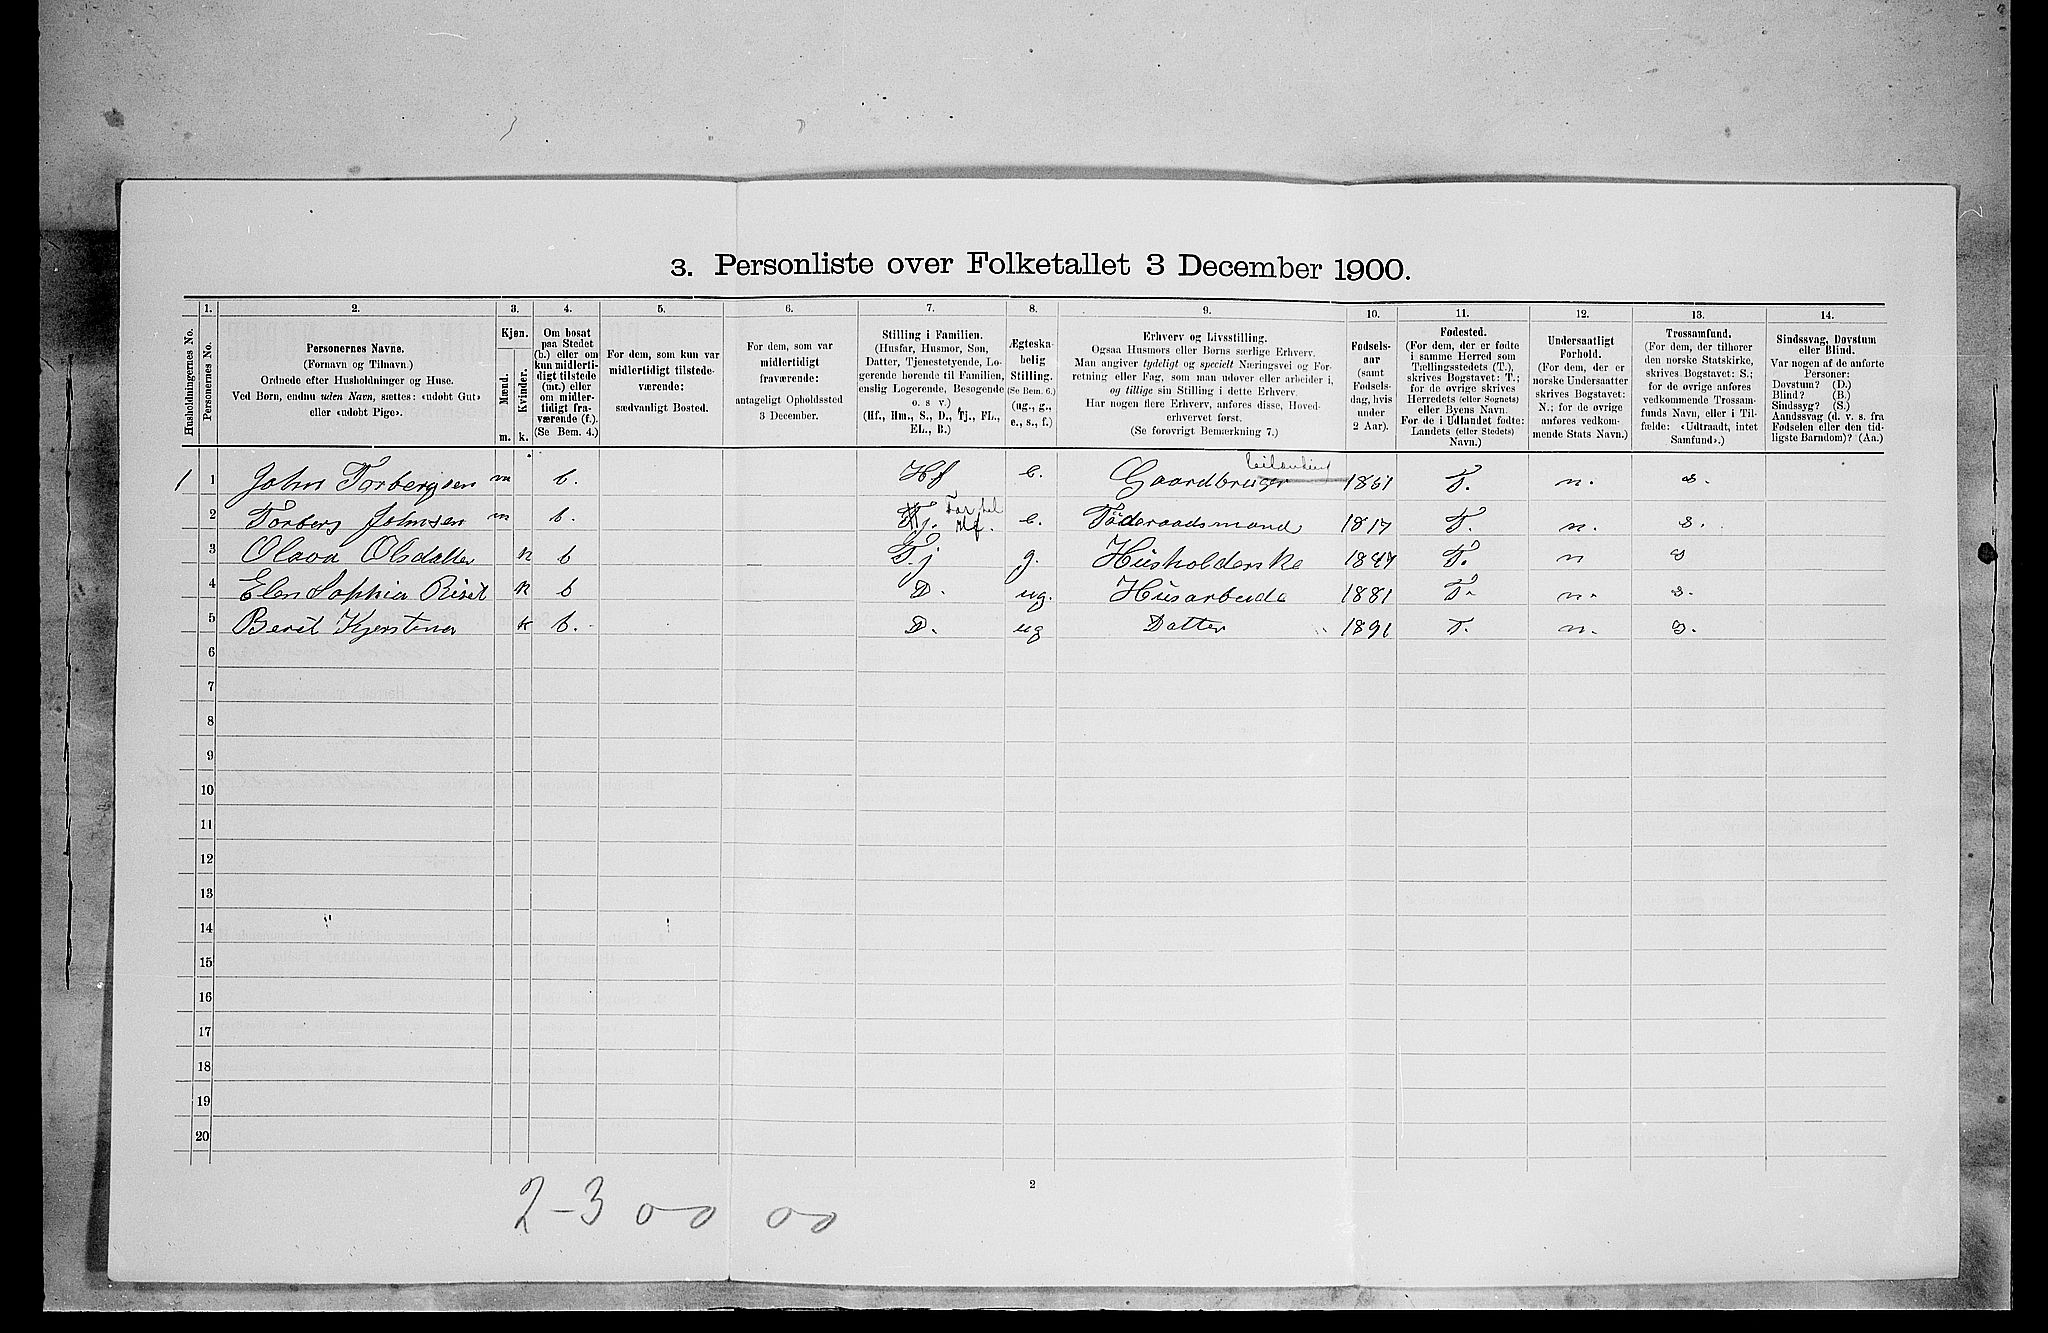 3. Personliste over Folketallet 3 December 1900.
Husholdningernes No.
1.
Personernes No.
2.
Personernes Navne.
(Fornavn og Tilnavn)
Ordnede efter Husholdninger og Huse.
Ved Børn, endnu uden Navn, sættes: «udøbt Gut»
eller «udøbt Pige».
3.
Kjøn.
Mænd.
Kvinder.
m. k.
4.
Om bosat
paa Stedet
(b.) eller om
kun midlerti-
digt tilstede
(mt.) eller
om midler-
tidigt fra-
værende (f.).
(Se Bem. 4.)
5.
For dem, som kun var
midlertidigt tilstede-
værende:
sædvanligt Bosted.
6.
For dem, som var
midlertidigt
fraværende:
antageligt Opholdssted
3 December.
7.
Stilling i Familien.
(Husfar, Husmor, Søn,
Datter, Tjenestetyende, Lo-
gerende hørende til Familien,
enslig Logerende, Besøgende
o. s. v.)
(Hf., Hm., S., D., Tj., FL.,
EL., B.)
8.
Ægteska-
belig
Stilling.
(Se Bem. 6.)
(ug., g.,
e., s., f.)
9.
Erhverv og Livsstilling.
Ogsaa Husmors eller Børns særlige Erhverv.
Man angiver tydeligt og specielt Næringsvei og For-
retning eller Fag, som man udøver eller arbeider i,
og tillige sin Stilling i dette Erhverv.
Har nogen flere Erhverv, anføres disse, Hoved-
erhvervet først.
(Se forøvrigt Bemærkning 7.)
10.
Fødsels-
aar
(samt
Fødsels-
dag, hvis
under
2 Aar).
11.
Fødested.
(For dem, der er fødte
i samme Herred som
Tællingsstedets (T.),
skrives Bogstavet: T.;
for de øvrige skrives
Herredets (eller Sognets)
eller Byens Navn.
For de i Udlandet fødte:
Landets (eller Stedets)
Navn.)
12.
Undersaatligt
Forhold.
(For dem, der er
norske Undersaatter
skrives Bogstavet:
N.; for de øvrige
anføres vedkom-
mende Stats Navn.)
13.
Trossamfund.
(For dem, der tilhører
den norske Statskirke,
skrives Bogstavet: S.;
for de øvrige anføres
vedkommende Trossam-
funds Navn, eller i Til-
fælde: «Udtraadt, intet
Samfund».)
14.
Sindssvag, Døvstum
eller Blind.
Var nogen af de anførte
Personer:
Døvstum? (D.)
Blind? (B.)
Sindssyg? (S.)
Aandssvag (d. v. s. fra
Fødselen eller den tid-
ligste Barndom)? (Aa.)
1 1 John Torbergsen m b. Hf e. Gaardbruger 1851 T. n. s.
2 Torberg Johnsen m b. Tj. Far til Hf. e. Föderaadsmand 1817 T. n. s.
3 Olava Olsdatter k b Tj g. Husholderske 1847 T. n s
4 Elen Sophia Riset k b D. ug. Husarbeide 1881 T. n. s.
5 Berit Kjerstena k b. D. ug Datter 1891 T. n. s.
6
7
8
9
10
11
12
13
14
15
16
17
18
19
20
2
2-3 00 00